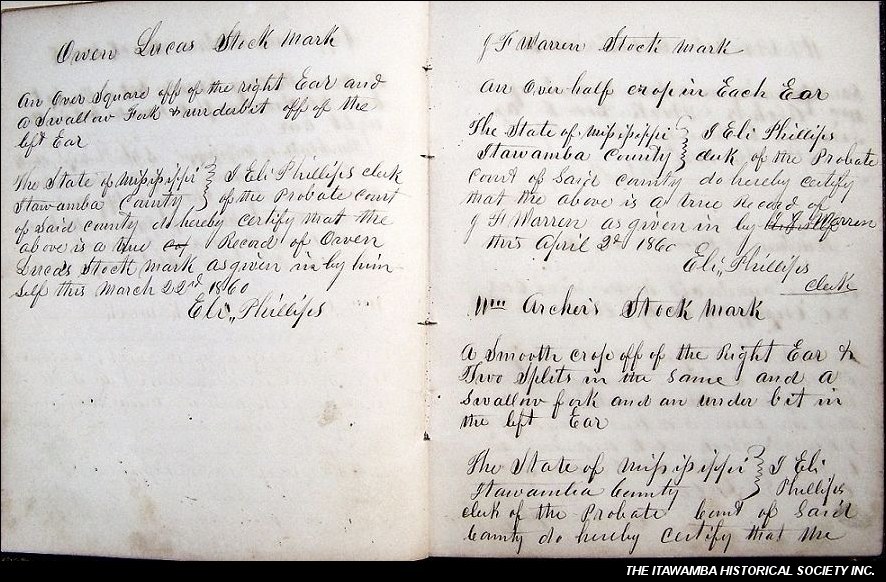 Owen Lucas Stock Mark
An Over Square off of the right Ear and
a Swallow Fork & underbit off of the
left Ear
The State of Mississippi } I Eli Phillips clerk
Itawamba County } of the Probate court
of Said county do hereby certify that the
above is a true Record of Owen
Lucas Stock mark as given in by him
Self this March 22nd 1860
Eli Phillips
J F Warren Stock mark
An Over half crop in Each Ear
The State of Mississippi } I Eli Phillips
Itawamba County } clerk of the Probate
Court of Said county do hereby certify
that the above is a true Record of
J F Warren as given in by Warren
this April 2d 1860
Eli Phillips
clerk
Wm Archer's Stock Mark
A Smooth crop off of the Right Ear &
Two Splits in the Same and a
Swallow fork and an under bit in
the left Ear
The State of Mississippi } I Eli
Itawamba County } Phillips
clerk of the Probate Court of Said
County do hereby certify that the
THE ITAWAMBA HISTORICAL SOCIETY INC.